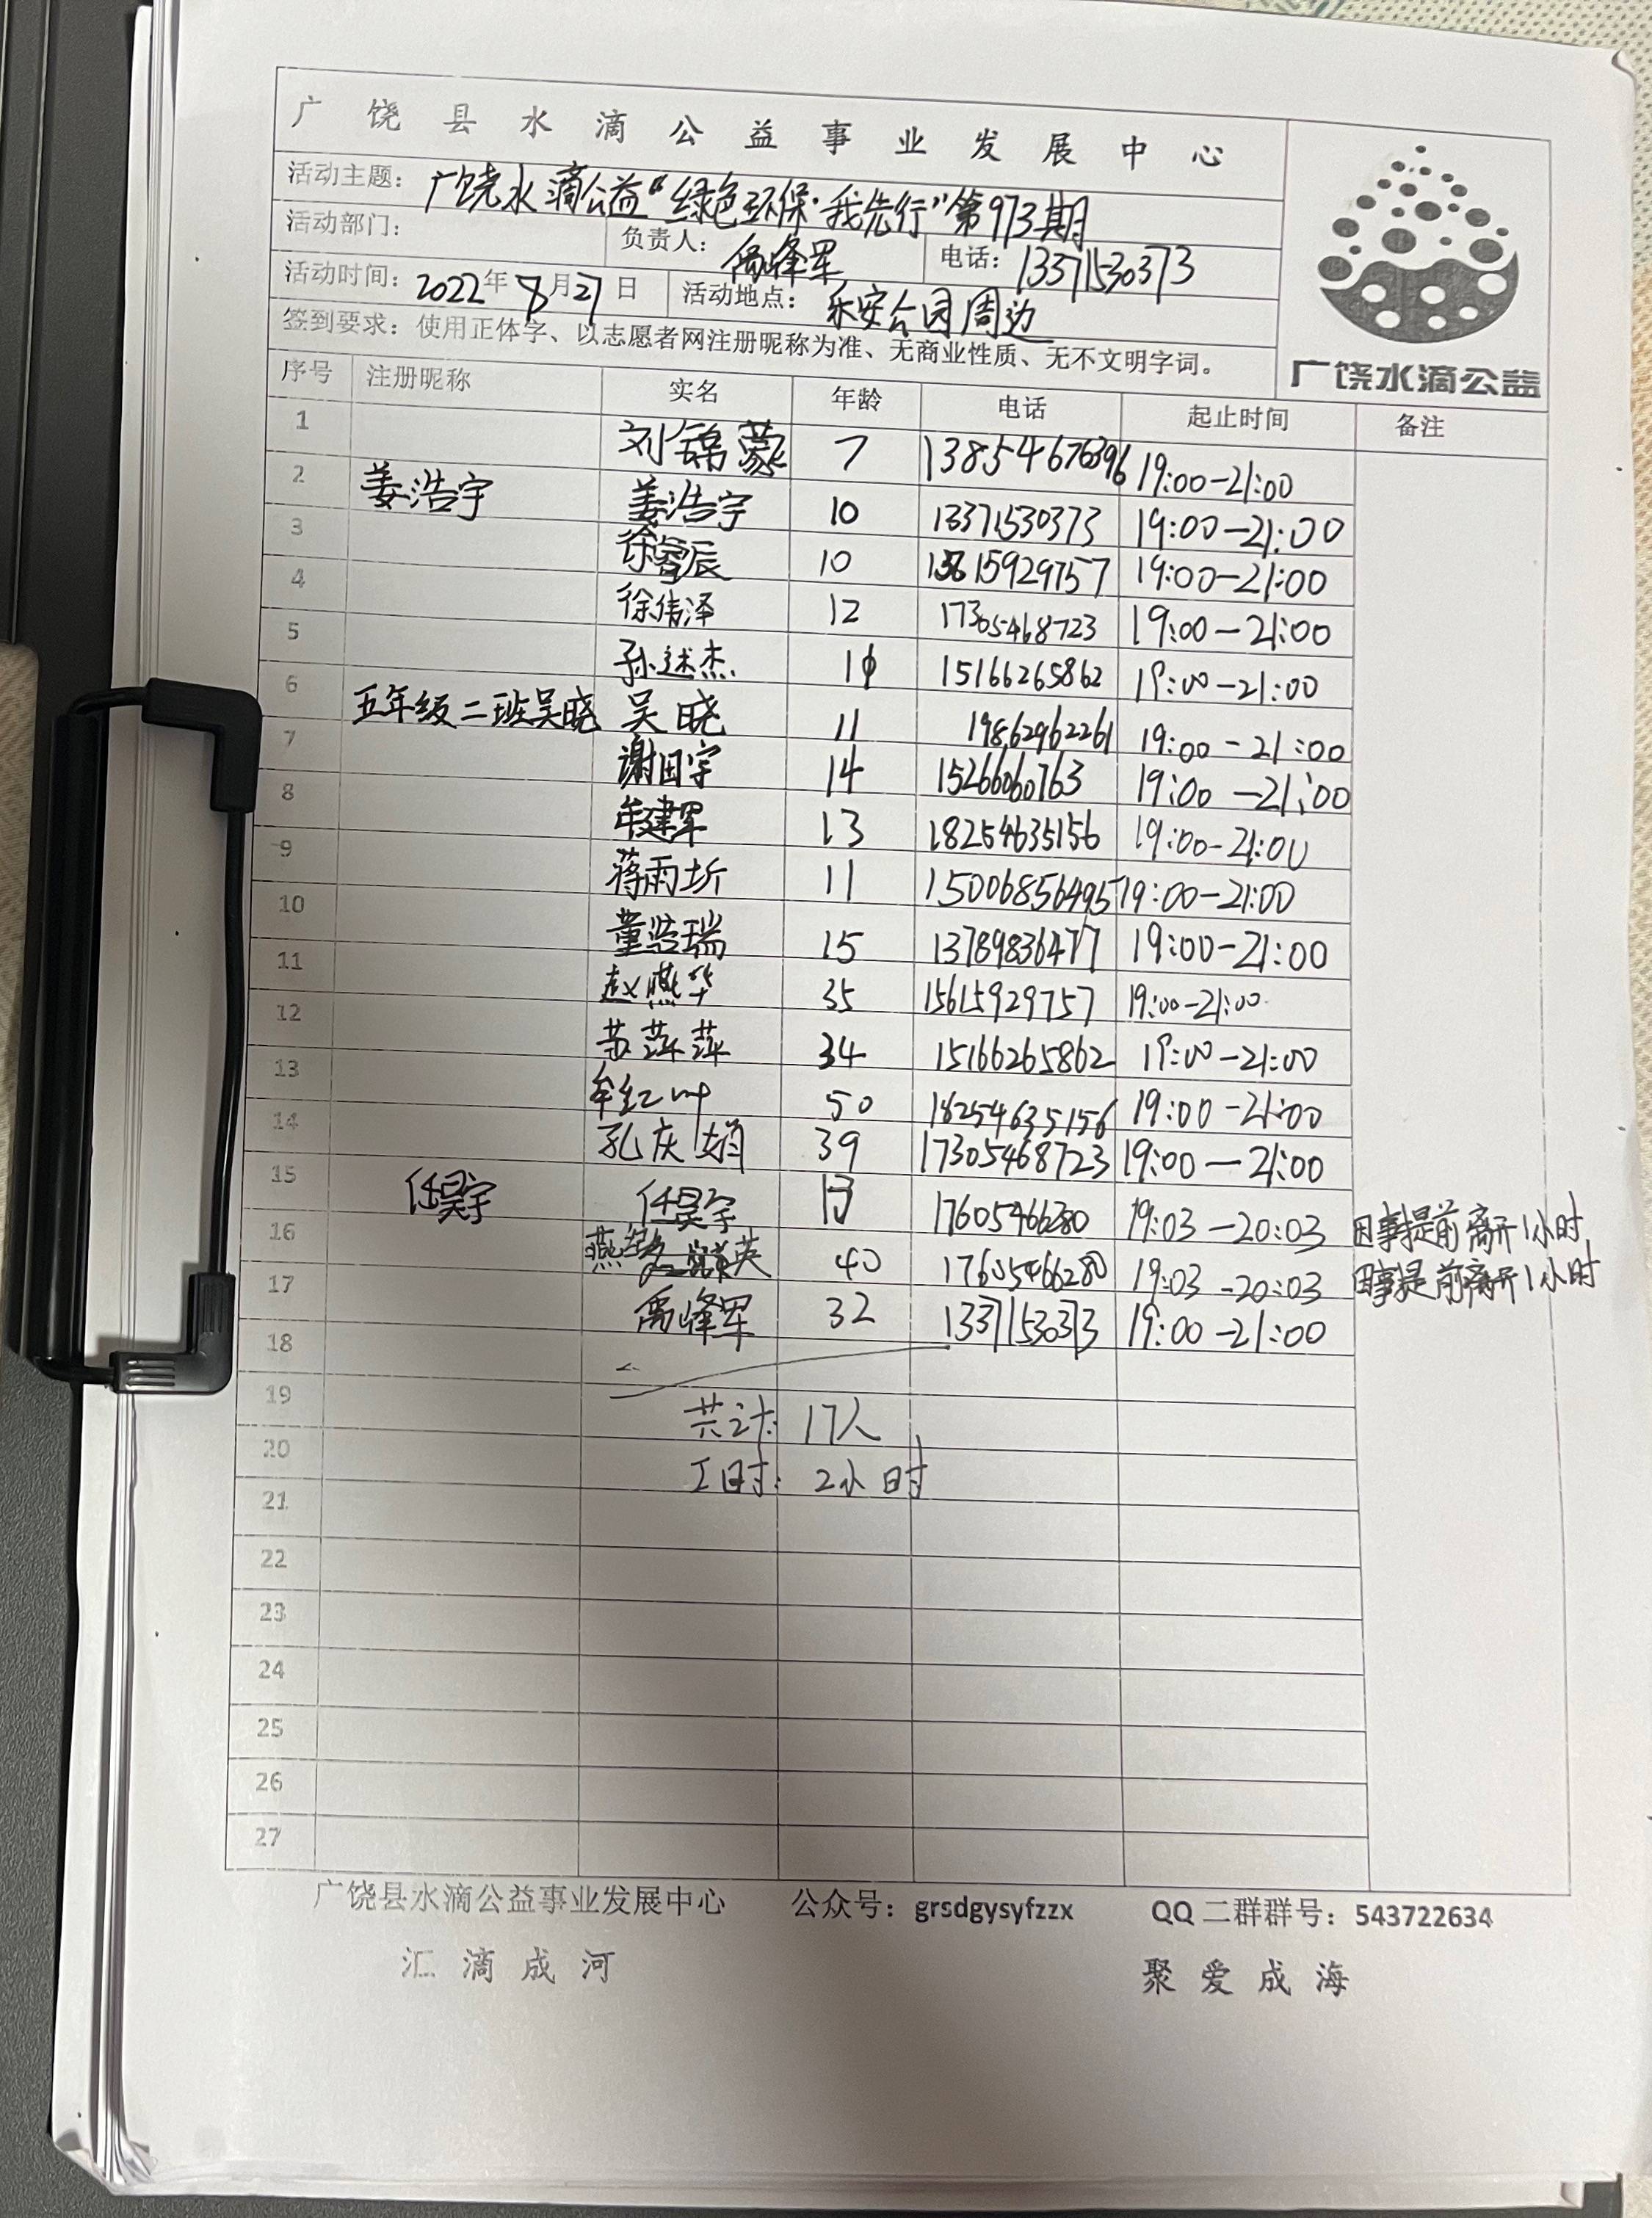 广饶县水滴公益事业发展中心
活动主题：广饶水滴公益“绿色环保·我先行”第973期
活动部门： 负责人：禹峰军 电话：13371530373
活动时间：2022年8月27日 活动地点：乐安公园周边
签到要求：使用正体字、以志愿者网注册昵称为准、无商业性质、无不文明字词。
广饶水滴公益
序号 注册昵称 实名 年龄 电话 起止时间 备注
1 刘锦蒙 7 19:00-21:00
2 姜浩宇 姜浩宇 10 13371530373 19:00-21:00
3 徐睿辰 10 15615929757 19:00-21:00
4 徐伟泽 12 17305468723 19:00-21:00
5 孙述杰 10 15166265862 19:00-21:00
6 五年级二班吴晓 吴晓 11 19862962261 19:00-21:00
7 谢田宇 14 15266060763 19:00-21:00
8 牟建军 13 18254635156 19:00-21:00
9 蒋雨圻 11 15006856495 19:00-21:00
10 董浩瑞 15 13789836477 19:00-21:00
11 赵燕华 35 15615929757 19:00-21:00
12 苏萍萍 34 15166265862 19:00-21:00
13 牟红叶 50 18254635156 19:00-21:00
14 孔庆娟 39 17305468723 19:00-21:00
15 任昊宇 任昊宇 17605466280 19:03-20:03 因事提前离开1小时
16 燕 英 40 17605466280 19:03-20:03 因事提前离开1小时
17 禹峰军 32 13371530373 19:00-21:00
18
19 共计：17人
20 工时：2小时
21
22
23
24
25
26
27
广饶县水滴公益事业发展中心 公众号：grsdgysyfzzx QQ二群群号：543722634
汇滴成河 聚爱成海